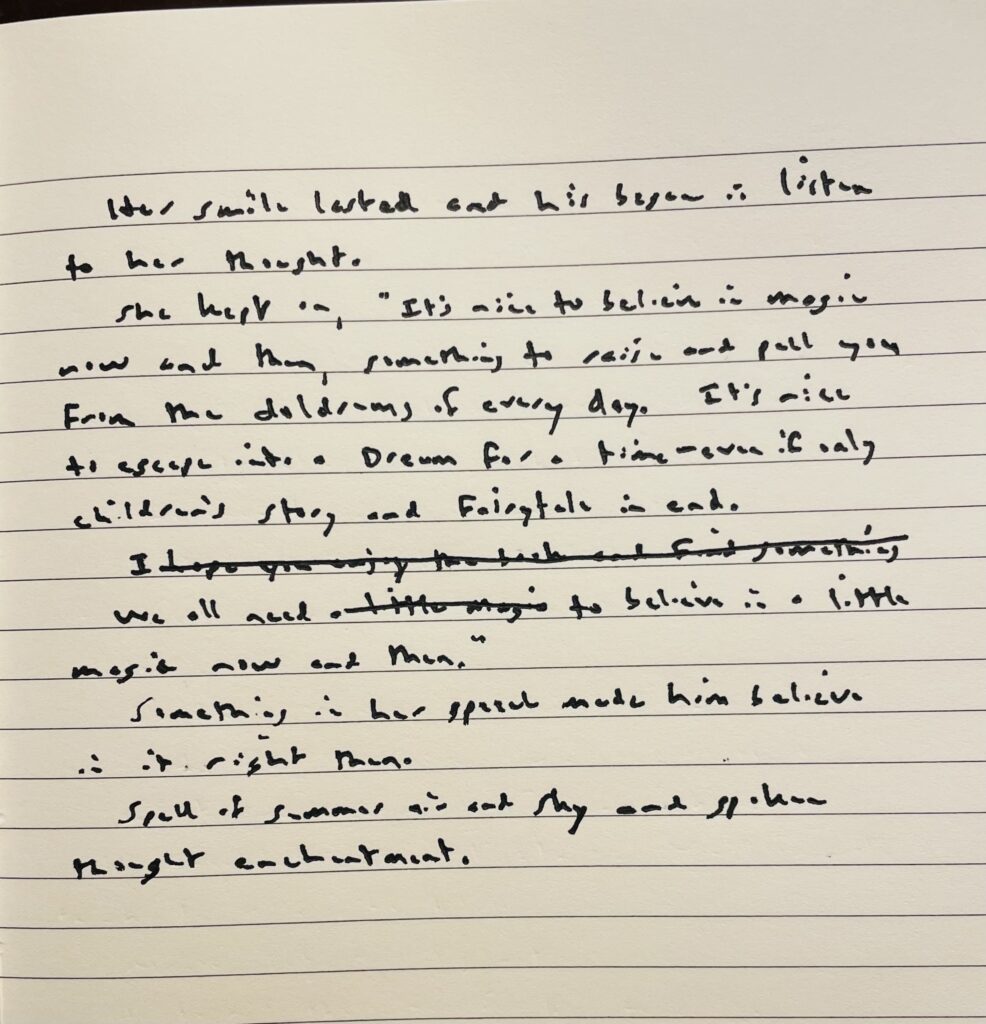 Her smile lasted and his began in listen
to her thought.
She kept on, "It's nice to believe in magic
now and then, something to raise and pull you
From the doldrums of every day. It's nice
to escape into a Dream for a time - even if only
children's story and Fairytale in end.
I hope you enjoy the book and find something
We all need a little magic to believe in a little
magic now and then."
Something in her speech made him believe
in it right then.
Spell of summer air and sky and spoken
thought enchantment.